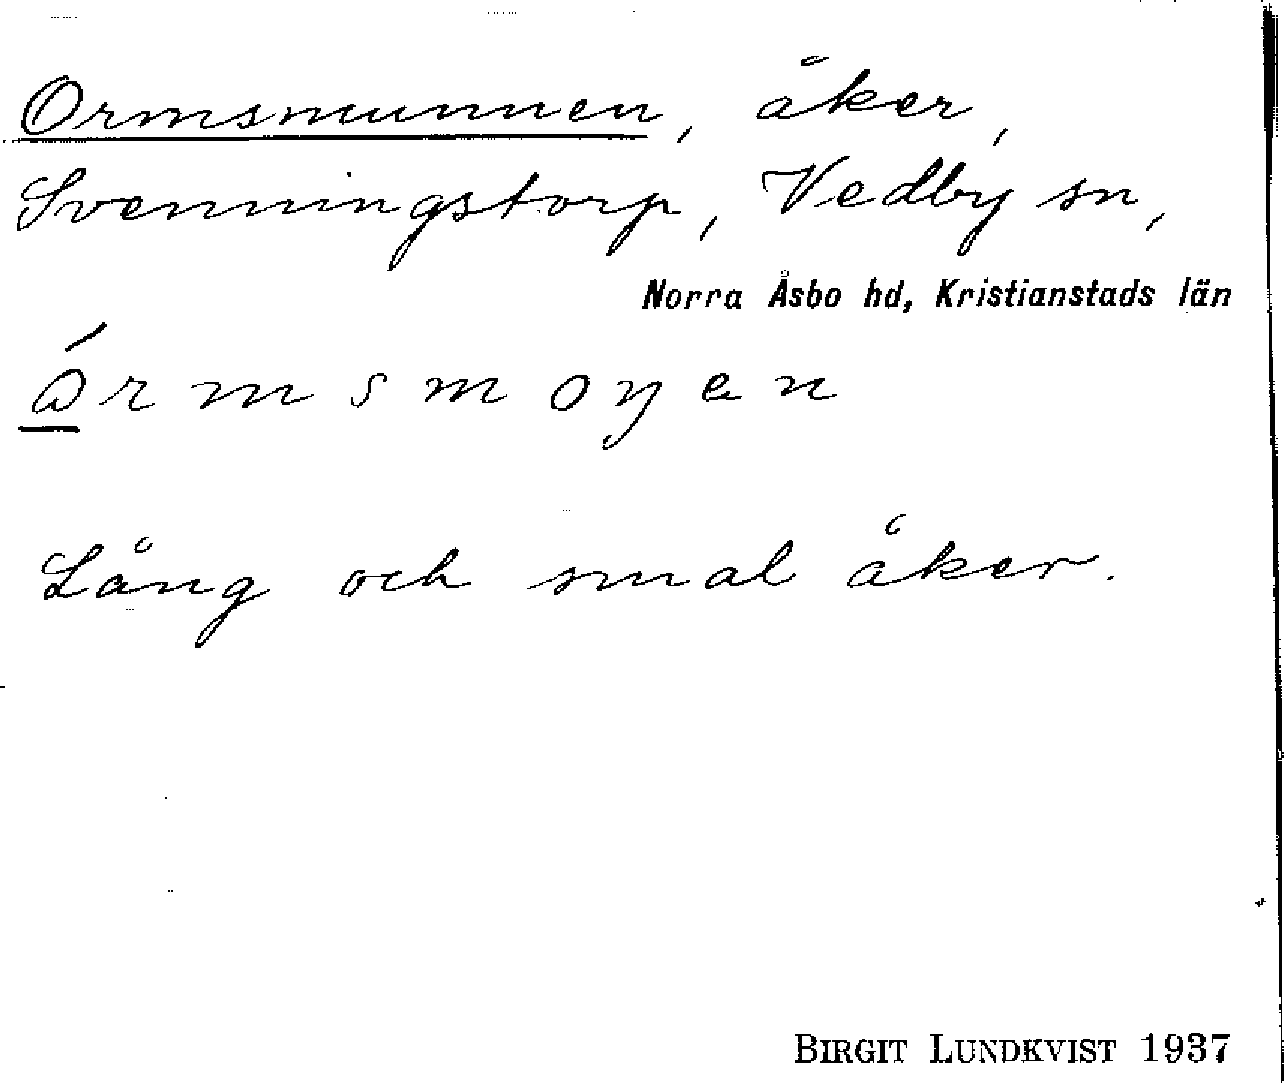 Ormsmunnen, åker,
Svenningstorp, Vedby sn,
Norra Åsbo hd, Kristianstads län
ó̲rmsmoyen
Lång och smal åker.
BIRGIT LUNDKVIST 1937